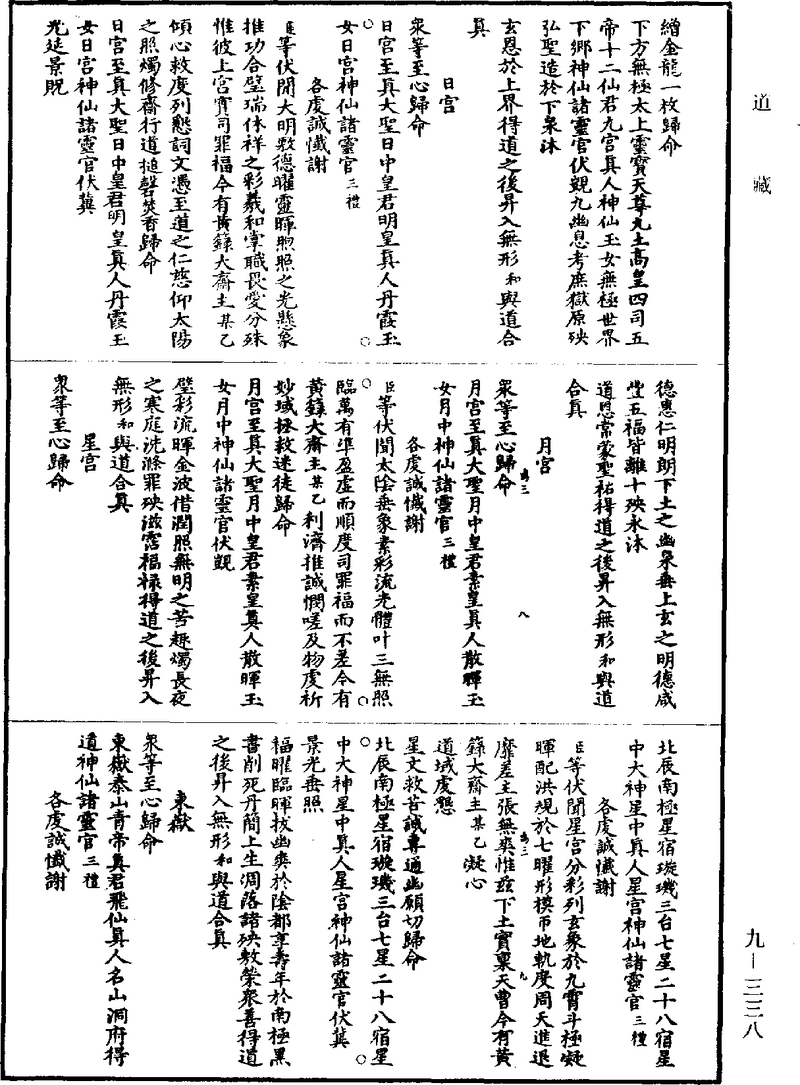 道藏
繒金龍一枚歸命
下方無極太上靈寶天尊九土高皇四司五
帝十二仙君九宮真人神仙玉女無極世界
下鄉神仙諸靈官伏覬九幽息考庶獄原殃
弘聖造於下泉沐
玄恩於上界得道之後昇入無形和與道合
真
日宮
衆等至心歸命
日宮至真大聖日中皇君明皇真人丹霞玉
女日宮神仙諸靈官三禮
各虔誠懺謝
臣等伏聞大明敷德曜靈暉煦照之光懸象
推功合璧瑞休祥之彩羲和掌職畏愛分殊
惟彼上宮實司罪福今有黃籙大齋主某乙
傾心救度列懇詞文憑至道之仁慈仰太陽
之照燭修齋行道搥磬焚香歸命
日宮至真大聖日中皇君明皇真人丹霞玉
女日宮神仙諸靈官伏冀
光延景貺
德惠仁明朗下土之幽泉垂上玄之明德咸
豐五福皆離十殃永沐
道恩常蒙聖祐得道之後昇入無形和與道
合真
月宮
衆等至心歸命
月宮至真大聖月中皇君素皇真人散暉玉
女月中神仙諸靈官三禮
各虔誠懺謝
臣等伏聞太陰垂象素彩流光體叶三無照
臨萬有準盈虛而順度司罪福而不差今有
黃籙大齋主某乙利濟推誠憫嗟及物虔祈
妙域拯救迷徒歸命
月宮至真大聖月中皇君素皇真人散暉玉
女月中神仙諸靈官伏覬
璧彩流暉金波借潤照無明之苦趣燭長夜
之寒庭洗滌罪殃滋霑福祿得道之後昇入
無形和與道合真
星宮
衆等至心歸命
北辰南極星宿璇璣三台七星二十八宿星
中大神星中真人星宮神仙諸靈官三禮
各虔誠懺謝
臣等伏聞星宮分彩列玄象於九霄斗極凝
暉配洪規於七曜形模帀地軌度周天進退
靡差主張無爽惟茲下土實稟天曹今有黃
籙大齋主某乙凝心
道域虔懇
星文救苦誠專通幽願切歸命
北辰南極星宿璇璣三台七星二十八宿星
中大神星中真人星宮神仙諸靈官伏冀
景光垂照
福曜臨暉拔幽爽於陰都享壽年於南極黑
書削死丹簡上生凋落諸殃敷榮衆善得道
之後昇入無形和與道合真
東嶽
衆等至心歸命
東嶽泰山青帝真君飛仙真人名山洞府得
道神仙諸靈官三禮
各虔誠懺謝
八
九
九—三三八